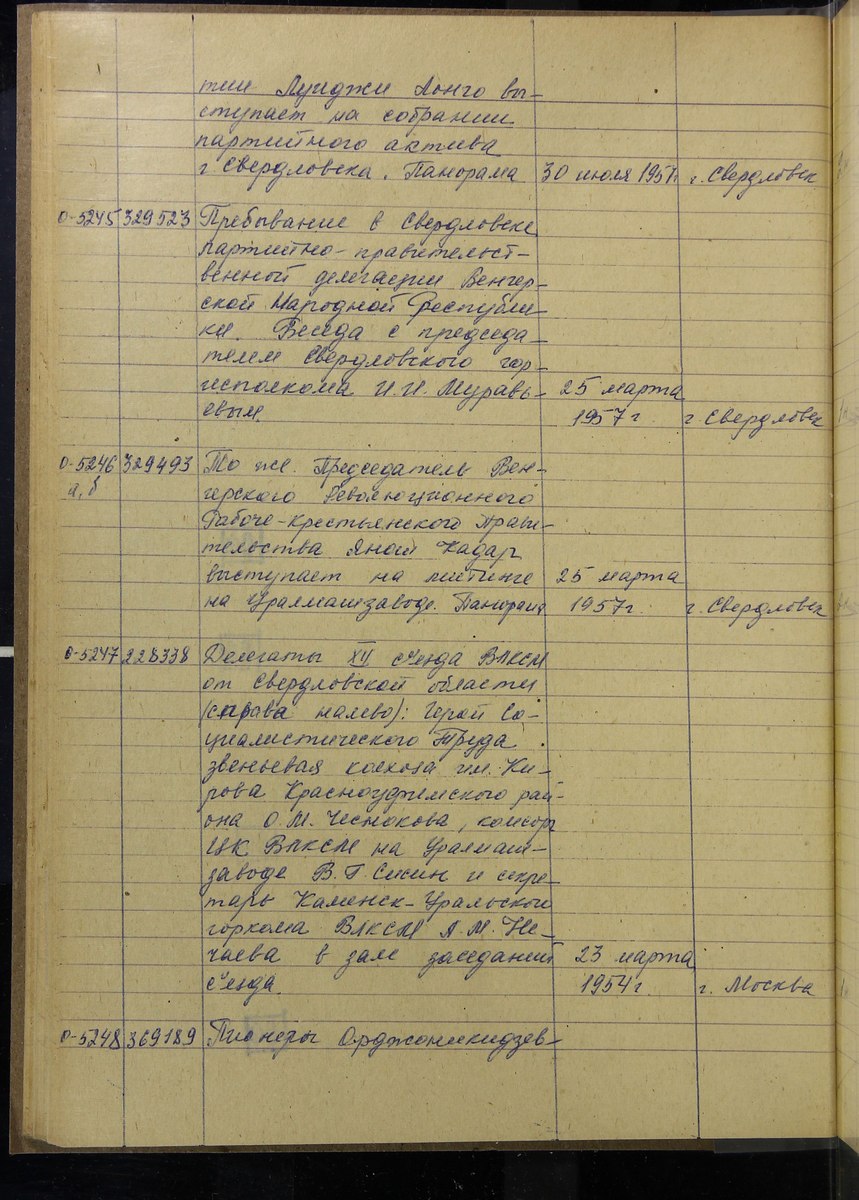 тии Луиджи Лонго вы-
ступает на собрании
партийного актива
г. Свердловска. Панорама 30 июля 1957г. г. Свердловск
0-5245 329523 Пребывание в Свердловске
партийно-правительст-
венной делегации Венгер-
ской Народной Республи-
ки. Беседа с председа-
телем Свердловского гор-
исполкома И.И. Муравь- 25 марта
евым. 1957г г. Свердловск
0-5246 329493 То же. Председатель Вен-
а, б герского Революционного
Рабоче-крестьянского Прави-
тельства Янош Кадар
выступает на митинге 25 марта
на Уралмашзаводе. Панорама 1957г. г. Свердловск
0-5247 228338 Делегаты XII съезда ВЛКСМ
от Свердловской области
(справа налево): Герой Со-
циалистического Труда
звеньевая колхоза им. Ки-
рова Красноуфимского рай-
она О.М. Чеснокова, комсорг
ЦК ВЛКСМ на Уралмаш-
заводе В.Г. Сисин и секре-
тарь Каменск-Уральского
горкома ВЛКСМ А.М. Не-
чаева в зале заседаний 23 марта
съезда. 1954г. г. Москва
0-5248 369189 Пионеры Орджоникидзев-